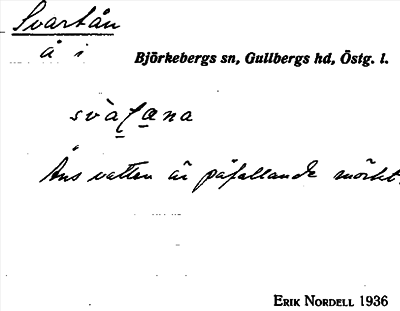 Svartån
å i
Björkebergs sn, Gullbergs hd, Östg. l.
Åns vatten är påfallande mörkt.
ERIK NORDELL 1936